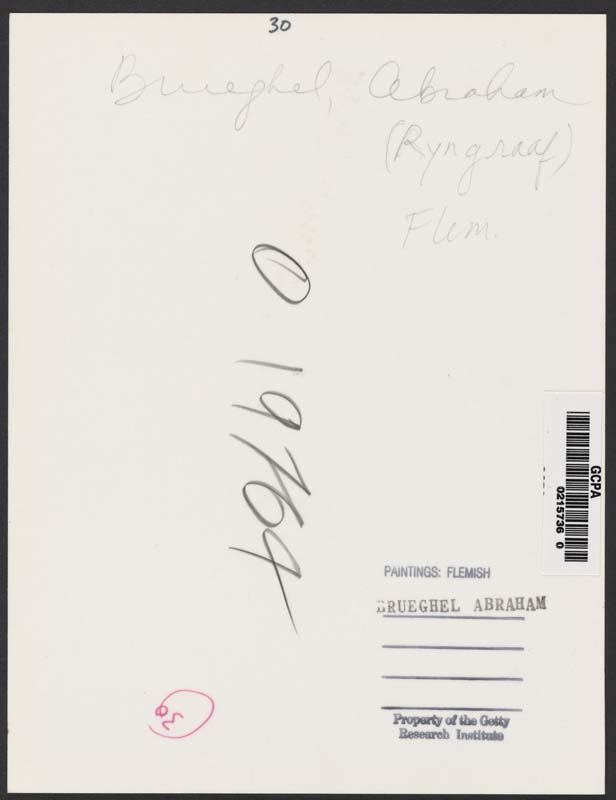 30
Brueghel, Abraham
(Ryngraaf)
Flem.
0 19764
GCPA
0215736 0
PAINTINGS: FLEMISH
BRUEGHEL ABRAHAM
Property of the Getty
Research Institute
30